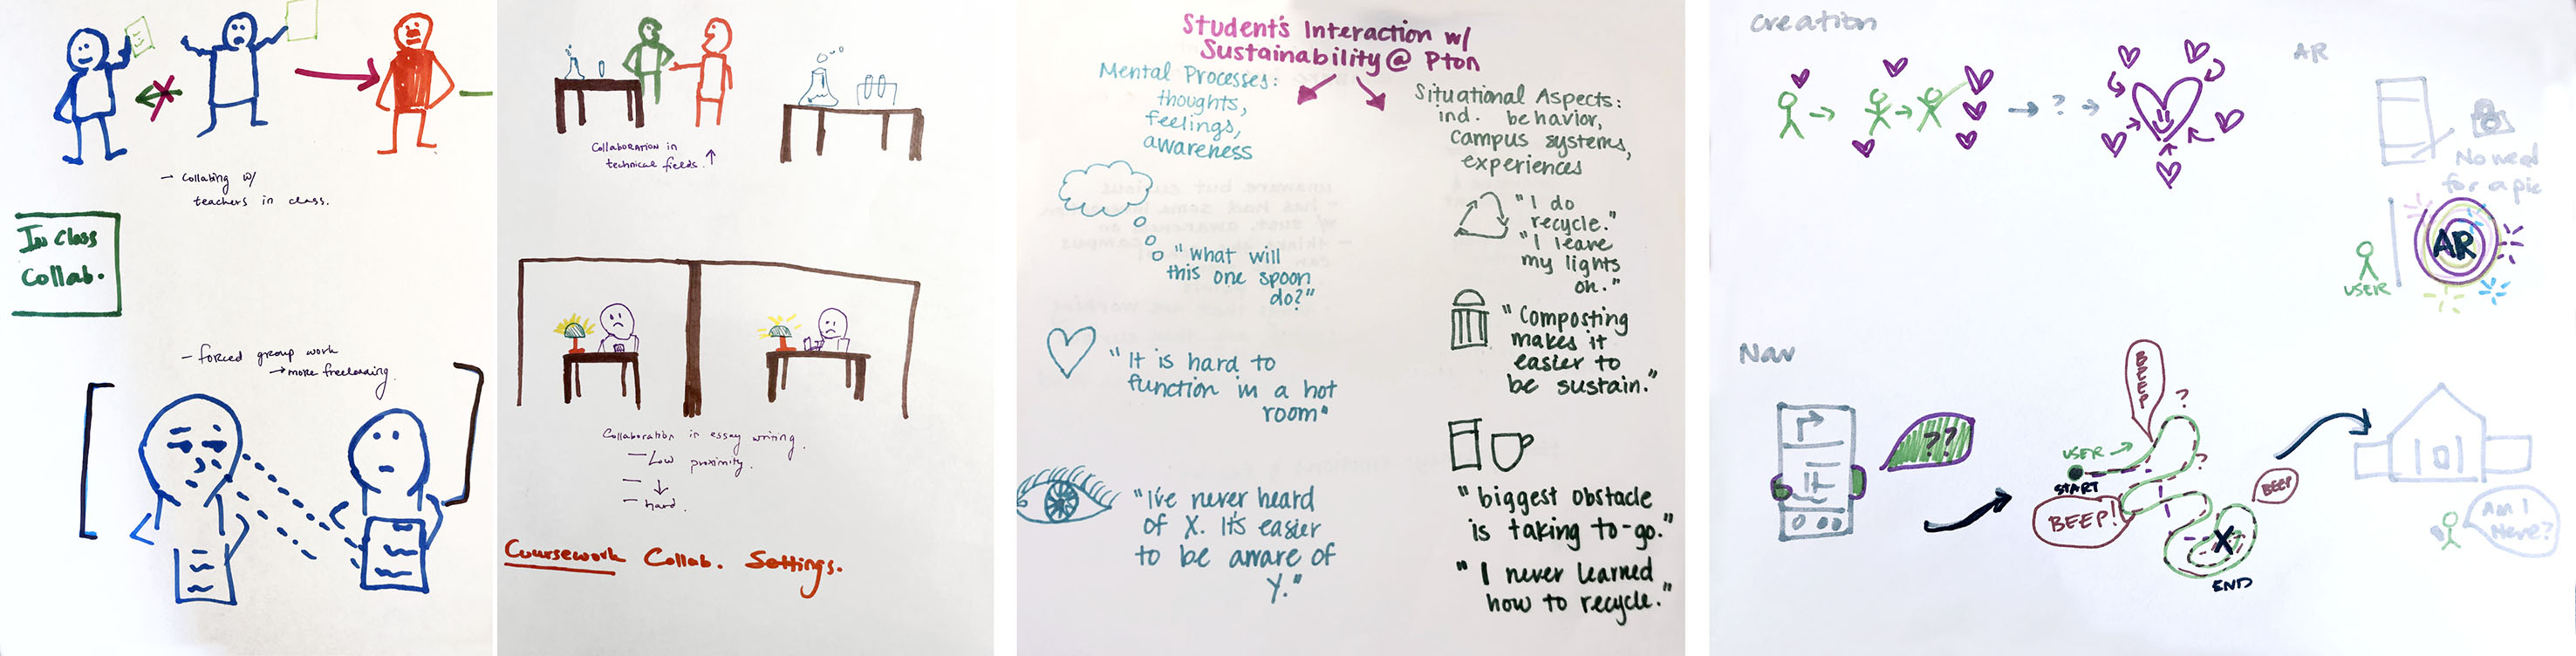 - Collabing w/
teachers in class.
In Class
Collab.
- forced group work
→ more freeloading.
Collaboration in
technical fields. ↑
Collaboration in essay writing.
- Low proximity.
- ↓
- hard.
Coursework Collab. Settings.
Student's Interaction w/
Sustainability @ Pton
Mental Processes:
thoughts,
feelings,
awareness
"what will
this one spoon
do?"
"It is hard to
function in a hot
room"
"I've never heard
of X. It's easier
to be aware of
Y."
Situational Aspects:
ind. behavior,
campus systems,
experiences
"I do
recycle."
"I leave
my lights
on."
"Composting
makes it
easier to
be sustain."
"biggest obstacle
is taking to-go."
"I never learned
how to recycle."
creation
?
AR
No need
for a pic
AR
USER
Nav
??
BEEP
?
USER →
?
START
BEEP!
BEEP
X
END
Am I
Here?